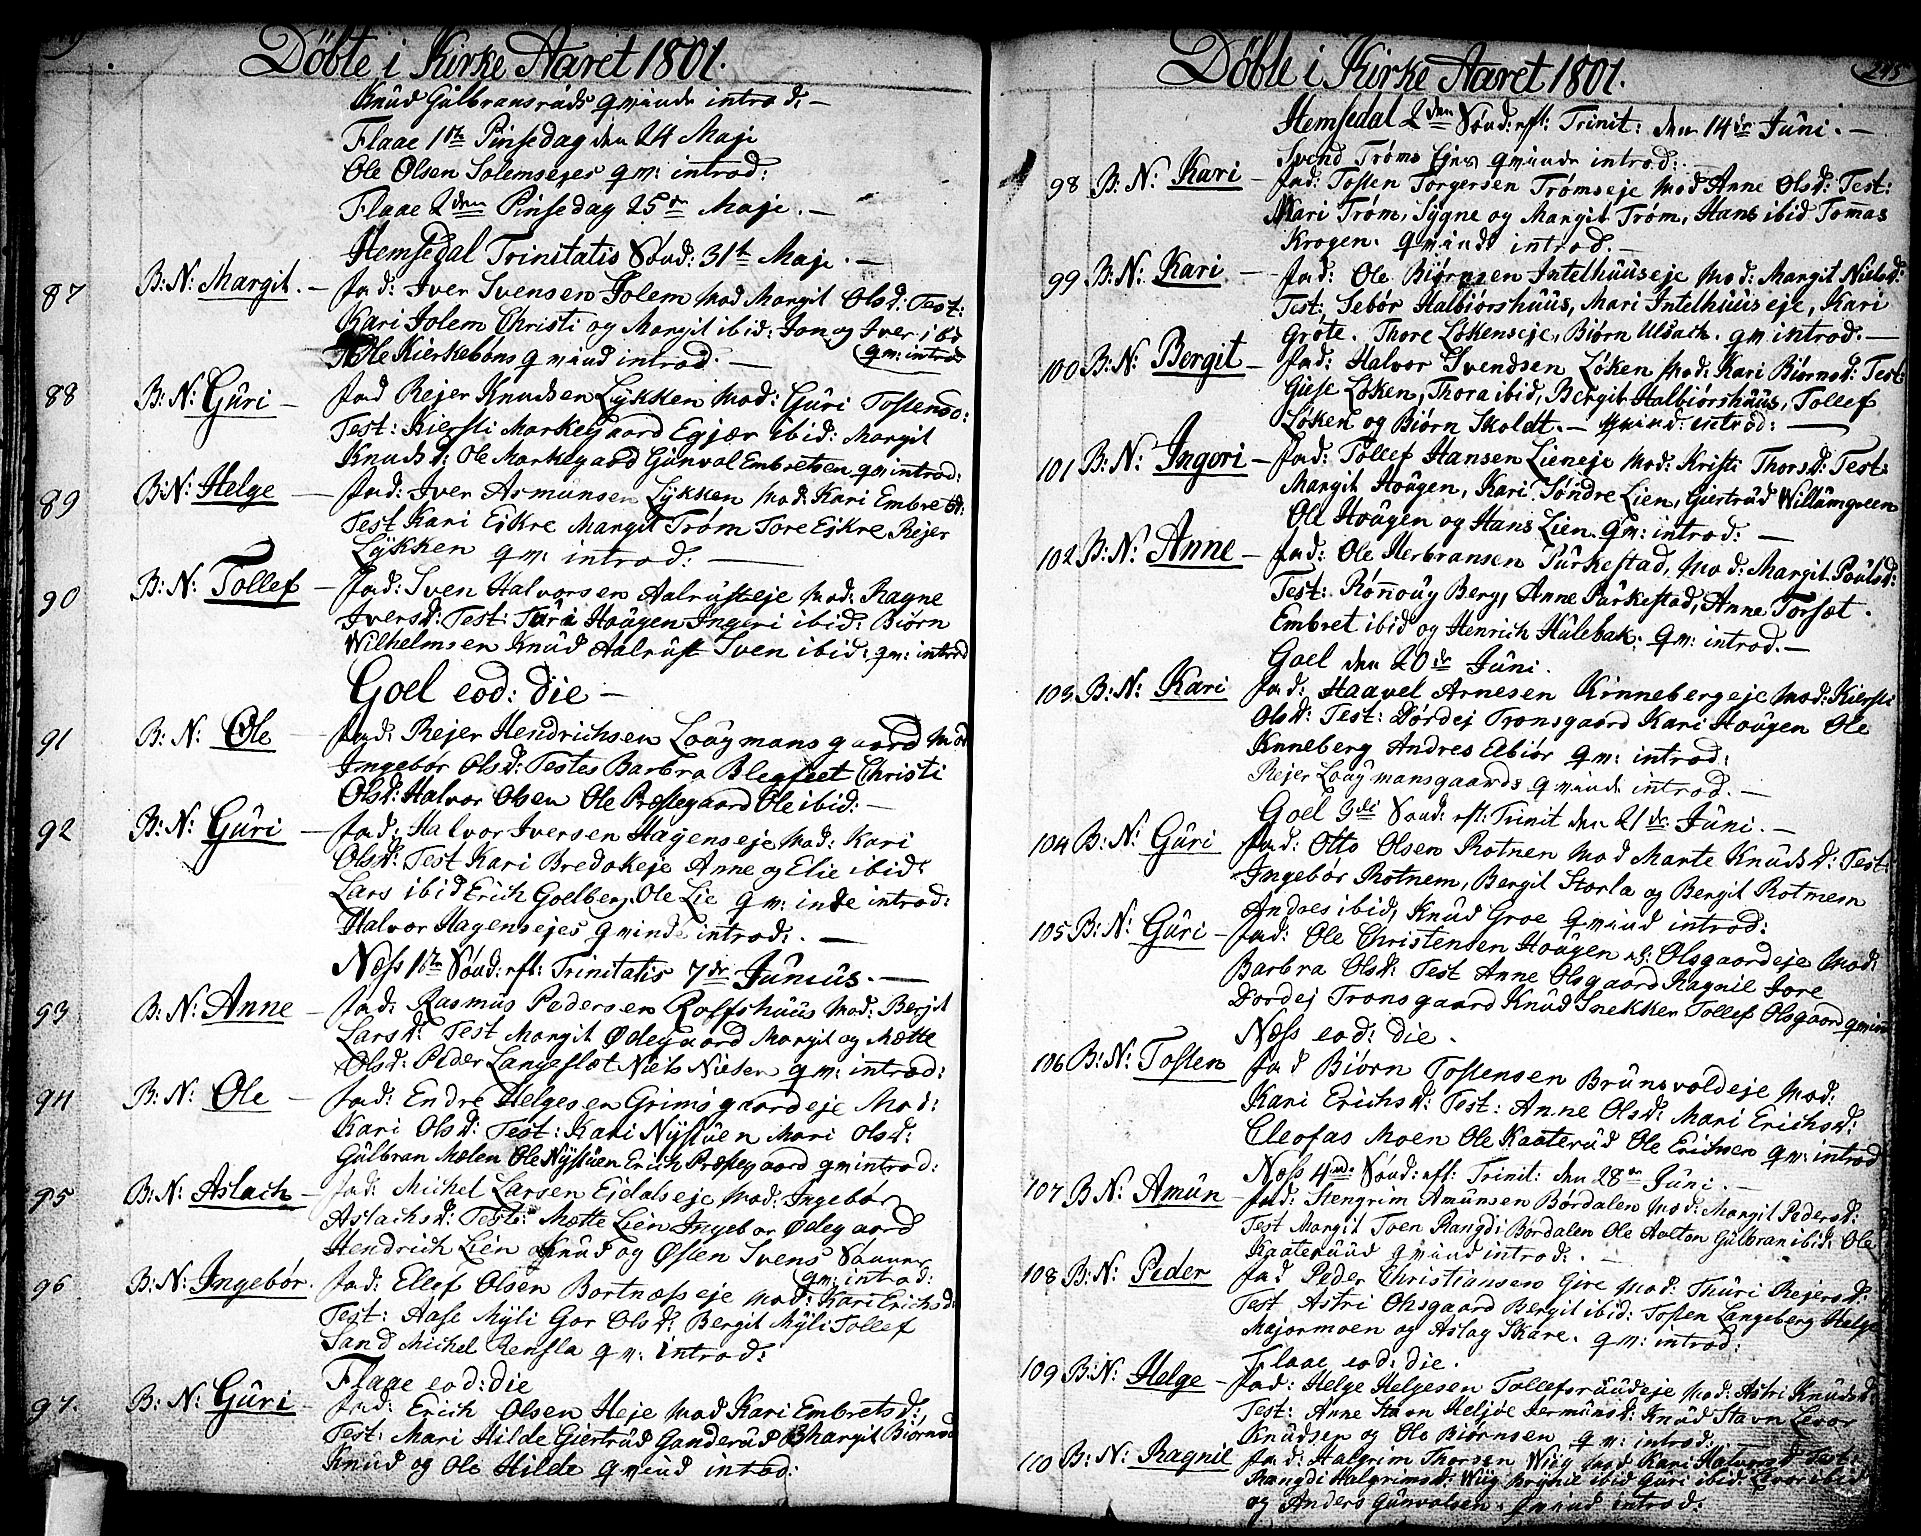 Döbte i Kirke Aaret 1801.
Knûd Gûlbransrûds qvinde introd: –
Flaae 1ste Pinsedag den 24 Maji
Ole Olsen Solemsejes qv: introd:
Flaae 2den Pinsedag 25de Maji. –
Hemsedal Trinitatis Sönd: 31te Maji. –
87 B: N: Margit. – Fad: Iver Svensen Jolem Mod Margit Olsd: Test:
Kari Jolem Christi og Margit ibid: Jon og Iver ibd
Ole Kierkeböns qvind introd: – qv: introd
88 B: N: Gûri – Fad Rejer Knudsen Lykken Mod: Gûri Tostensd:
Test: Kiersti Markegaard Egjær ibid: Margit
Knudsd: Ole Markegaard Gunvol Embretsen qv introd:
89 B: N: Helge – Fad: Iver Asmunsen Lykken Mod: Kari Embretsd:
Test Kari Eikre Margit Tröm Tore Eikre Rejer
Lykken qv: introd: –
90 B: N: Tollef – Fad: Sven Halvorsen Aalrusteje Mod: Ragne
Iversd: Test: Turi Hougen Ingri ibid: Biörn
Wilhelmsen Knûd Aalrust Sven ibid: qv: introd
Goel eod: die –
91 B: N: Ole – Fad: Rejer Hendrichsen Loûgmansgaard Mod
Ingebör Olsd: Testes Barbra Blegfeet Christi
Olsd: Halvor Olsen Ole Præstegaard Ole ibid: –
92 B: N: Gûri – Fad: Halvor Iversen Hagenseje Mod: Kari
Olsd: Test Kari Bredokeje Anne og Elie ibid:
Lars ibid Erich Goelberg, Ole Lie qv: inde introd:
Halvor Hagensejes qvinde introd: –
Næss 1ste Sönd: eft: Trinitatis 7de Junius. –
93 B: N: Anne – Fad: Rasmus Pedersen Rolfshuus Mod: Bergit
Larsd: Test Margit Ødegaard Margit og Mætte
Olsd: Peder Langeslæt Niels Nielsen qv: introd:
94 B: N: Ole – Fad: Endre Helgesen Grimsgaardeje Mod:
Kari Olsd: Test: Kari Nystuen Mari Olsd:
Gûlbran Mælen Ole Nystuen Erich Præstegaard qv introd:
95 B: N: Aslach – Fad: Michel Larsen Eidalseje Mod: Ingebör
Aslachsd: Test: Mætte Lien Ingebor Ødegaard
Hendrich Lien Knûd og Östen Svens Sönner
qv: introd:
96 B: N: Ingebör. Fad: Ellef Olsen Bortnæsseje Mod: Kari Erichsd:
Test: Aase Myli Gor Olsd: Bergit Myli Tollef
Sand Michel Rensla qv: introd:
Flaae eod: die
97. B: N: Gûri – Fad: Erich Olsen Heje Mod Kari Embretsd:
Test: Mari Hilde Giertrud Ganderud Margit Biörnsd
Knud og Ole Hilde qvind introd:
Döbte i Kirke Aaret 1801.
245
Hemsedal 2den Sönd: eft: Trinit: den 14de Juni. –
Svend Tröms Ejes qvinde introd:
98 B: N: Kari – Fad: Tosten Torgersen Trömseje Mod Anne Olsd: Test:
Mari Tröm, Sygne og Margit Tröm, Hans ibid Tomas
Krogen. qvinde introd. –
99 B: N: Kari – Fad: Ole Biörnsen Intelhuuseje Mod: Margit Nielsd:
Test: Sebör Halbiörshuus, Mari Intelhuuseje, Kari
Gröte. Thore Lökenseje, Biörn Ulsach. qv introd. –
100 B: N: Bergit – Fad: Halvor Svendsen Löken Mod: Kari Biörnsd: Test:
Giese Löken, Thora ibid, Bergit Halbiörshuus, Tollef
Löken og Biörn Skoldt. – qvind: introd: –
101 B: N: Ingeri – Fad: Tollef Hansen Lieneje Mod: Kristi Thorsd: Test:
Margit Hougen, Kari Söndre Lien, Giertrud Willumgveen
Ole Hougen og Hans Lien. qv: introd: –
102 B: N: Anne – Fad: Ole Herbransen Purkestad, Mod: Margit Poulsd:
Test: Rönnoug Berg, Anne Purkestad, Anne Torsæt.
Embret ibid og Henrich Hulebak. qv: introd. –
Goel den 20de Juni.
103 B: N: Kari Fad: Haavel Arnesen Kinnebergeje Mod: Kiersti
Olsd: Test: Dördej Tronsgaard Kari Hougen Ole
Kinneberg Andres Elbiör qv: introd:
Rejer Loûgmansgaards qvinde introd. –
Goel 3die Sönd: eft: Trinit den 21de Juni. –
104 B: N: Gûri Fad: Otto Olsen Rotnem Mod Marte Knudsd: Test:
Ingebör Rotnem, Bergit Storla og Bergit Rotnem
Andres ibid, Knud Groe qvind introd:
105 B: N: Gûri – Fad: Ole Christensen Hougen Olsgaardeje Mod:
Barbra Olsd: Test Anne Olsgaard Ragnil Jore
Dordej Tronsgaard Knud Snekker Tollef Olsgaard qvind
Næss eod: die.
106 B: N: Tosten Fad Biörn Tostensen Brunsvoldeje Mod:
Kari Erichsd: Test: Anne Olsd: Mari Erichsd:
Cleofas Moen Ole Kaaterud Ole Erichsen qv: introd
Næss 4de Sönd: eft: Trinit: den 28de Juni. –
107 B N: Amûn – Fad: Stengrim Amunsen Bördalen Mod: Margit Pedersd:
Test Margit Tven Rangdi Bördalen Ole Aalton Gulbran ibid: Ole
Kaaterud qvind introd:
108 B: N: Peder Fad Peder Christiansen Gire Mod: Thuri Rejersd:
Test Astri Olsgaard Bergit ibid: Tosten Langeberg Helge
Majormoen og Aslag Skare. qv: introd:
Flaae eod: die.
109 B: N: Helge – Fad: Helge Helgesen Tollefsruudeje Mod: Astri Knudsd:
Test: Anne Stavn Heljöe Jermunsd: Knud Stavn Levor
Knudsen og Ole Biörnsen qv: introd.
110 B: N: Ragnil Fad: Halgrim Thorsen Wiig Mod Kari Halvorsd Test:
Rangdi Halgrimsd: Wiig Brynil ibid Guri ibid: Levor ibid
og Anders Gunvolsen. qvind introd: